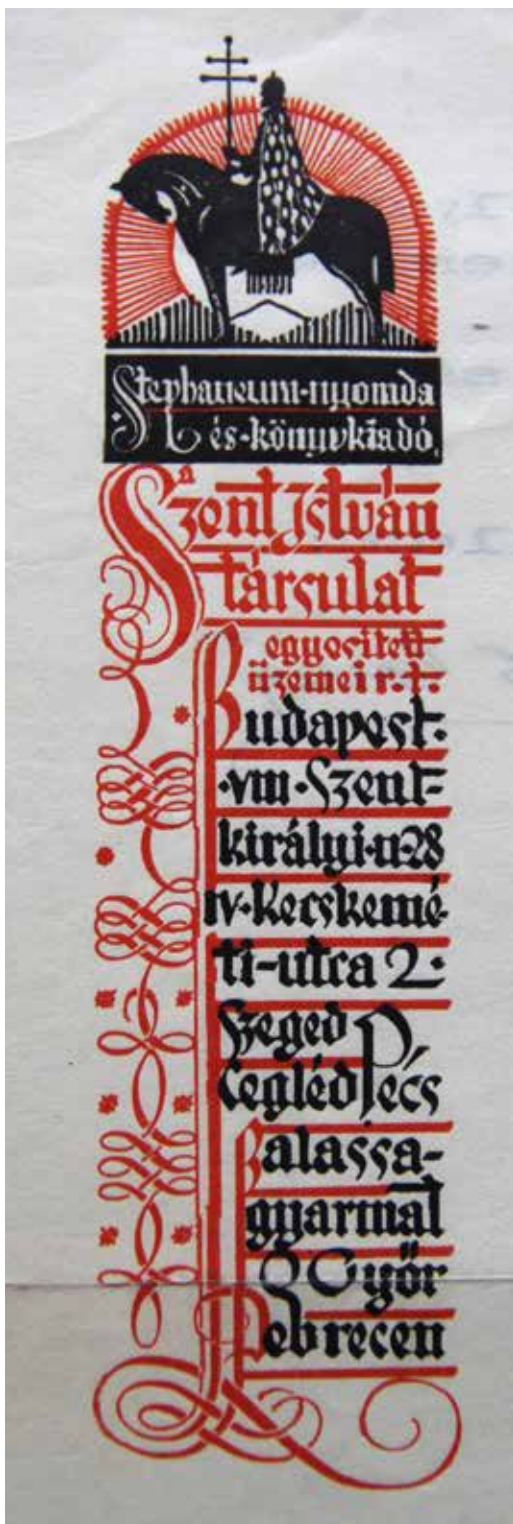 Stephaneum-nyomda
és-könyvkiadó.
A
Szent István
társulat
egyesített
üzemei r.t.
Budapest.
·VIII·Szent=
királyi·u·28
IV·Kecskemé-
ti-utca 2·
Szeged
Cegléd Pécs
Balassa-
gyarmat
Győr
Debrecen